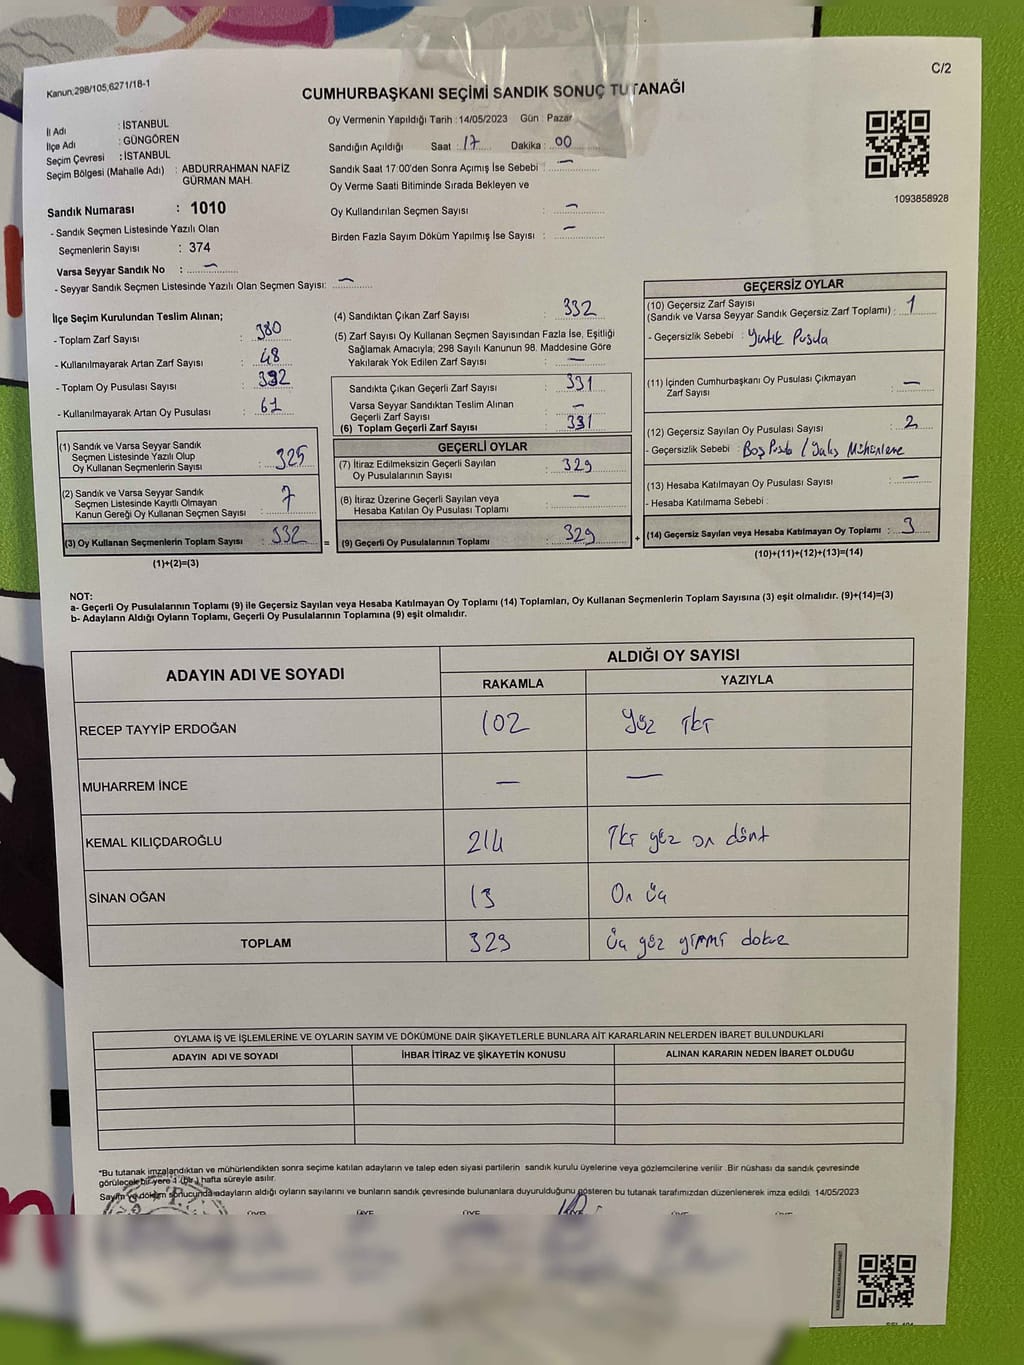 C/2
Kanun,298/105,6271/18-1
CUMHURBAŞKANI SEÇİMİ SANDIK SONUÇ TUTANAĞI
İl Adı : İSTANBUL
İlçe Adı : GÜNGÖREN
Seçim Çevresi : İSTANBUL
Seçim Bölgesi (Mahalle Adı) : ABDURRAHMAN NAFİZ
GÜRMAN MAH.
Sandık Numarası : 1010
- Sandık Seçmen Listesinde Yazılı Olan
Seçmenlerin Sayısı : 374
Varsa Seyyar Sandık No : —
- Seyyar Sandık Seçmen Listesinde Yazılı Olan Seçmen Sayısı: —
Oy Vermenin Yapıldığı Tarih : 14/05/2023 Gün : Pazar
Sandığın Açıldığı Saat : 17 Dakika : 00
Sandık Saat 17:00'den Sonra Açımış İse Sebebi : —
Oy Verme Saati Bitiminde Sırada Bekleyen ve
Oy Kullandırılan Seçmen Sayısı : —
Birden Fazla Sayım Döküm Yapılmış İse Sayısı : —
1093858928
İlçe Seçim Kurulundan Teslim Alınan;
- Toplam Zarf Sayısı : 380
- Kullanılmayarak Artan Zarf Sayısı : 48
- Toplam Oy Pusulası Sayısı : 392
- Kullanılmayarak Artan Oy Pusulası : 61
(1) Sandık ve Varsa Seyyar Sandık
Seçmen Listesinde Yazılı Olup
Oy Kullanan Seçmenlerin Sayısı : 325
(2) Sandık ve Varsa Seyyar Sandık
Seçmen Listesinde Kayıtlı Olmayan
Kanun Gereği Oy Kullanan Seçmen Sayısı : 7
(3) Oy Kullanan Seçmenlerin Toplam Sayısı : 332 =
(1)+(2)=(3)
(4) Sandıktan Çıkan Zarf Sayısı : 332
(5) Zarf Sayısı Oy Kullanan Seçmen Sayısından Fazla İse, Eşitliği
Sağlamak Amacıyla; 298 Sayılı Kanunun 98. Maddesine Göre
Yakılarak Yok Edilen Zarf Sayısı : —
Sandıkta Çıkan Geçerli Zarf Sayısı : 331
Varsa Seyyar Sandıktan Teslim Alınan
Geçerli Zarf Sayısı : —
(6) Toplam Geçerli Zarf Sayısı : 331
GEÇERLİ OYLAR
(7) İtiraz Edilmeksizin Geçerli Sayılan
Oy Pusulalarının Sayısı : 329
(8) İtiraz Üzerine Geçerli Sayılan veya
Hesaba Katılan Oy Pusulası Toplamı : —
(9) Geçerli Oy Pusulalarının Toplamı : 329 +
GEÇERSİZ OYLAR
(10) Geçersiz Zarf Sayısı
(Sandık ve Varsa Seyyar Sandık Geçersiz Zarf Toplamı) : 1
- Geçersizlik Sebebi : Yırtık Pusula
(11) İçinden Cumhurbaşkanı Oy Pusulası Çıkmayan
Zarf Sayısı : —
(12) Geçersiz Sayılan Oy Pusulası Sayısı : 2
- Geçersizlik Sebebi : Boş Pusula / Yalış Mühürleme
(13) Hesaba Katılmayan Oy Pusulası Sayısı : —
- Hesaba Katılmama Sebebi :
(14) Geçersiz Sayılan veya Hesaba Katılmayan Oy Toplamı : 3
(10)+(11)+(12)+(13)=(14)
NOT:
a- Geçerli Oy Pusulalarının Toplamı (9) ile Geçersiz Sayılan veya Hesaba Katılmayan Oy Toplamı (14) Toplamları, Oy Kullanan Seçmenlerin Toplam Sayısına (3) eşit olmalıdır. (9)+(14)=(3)
b- Adayların Aldığı Oyların Toplamı, Geçerli Oy Pusulalarının Toplamına (9) eşit olmalıdır.
ADAYIN ADI VE SOYADI ALDIĞI OY SAYISI
RAKAMLA YAZIYLA
RECEP TAYYİP ERDOĞAN 102 Yüz iki
MUHARREM İNCE — —
KEMAL KILIÇDAROĞLU 214 İki yüz on dört
SİNAN OĞAN 13 On üç
TOPLAM 329 Üç yüz yirmi dokuz
OYLAMA İŞ VE İŞLEMLERİNE VE OYLARIN SAYIM VE DÖKÜMÜNE DAİR ŞİKAYETLERLE BUNLARA AİT KARARLARIN NELERDEN İBARET BULUNDUKLARI
ADAYIN ADI VE SOYADI İHBAR İTİRAZ VE ŞİKAYETİN KONUSU ALINAN KARARIN NEDEN İBARET OLDUĞU
*Bu tutanak imzalandıktan ve mühürlendikten sonra seçime katılan adayların ve talep eden siyasi partilerin sandık kurulu üyelerine veya gözlemcilerine verilir. Bir nüshası da sandık çevresinde
görülecek bir yere 1 (bir) hafta süreyle asılır.
Sayım ve döküm sonucunda adayların aldığı oyların sayılarını ve bunların sandık çevresinde bulunanlara duyurulduğunu gösteren bu tutanak tarafımızdan düzenlenerek imza edildi. 14/05/2023